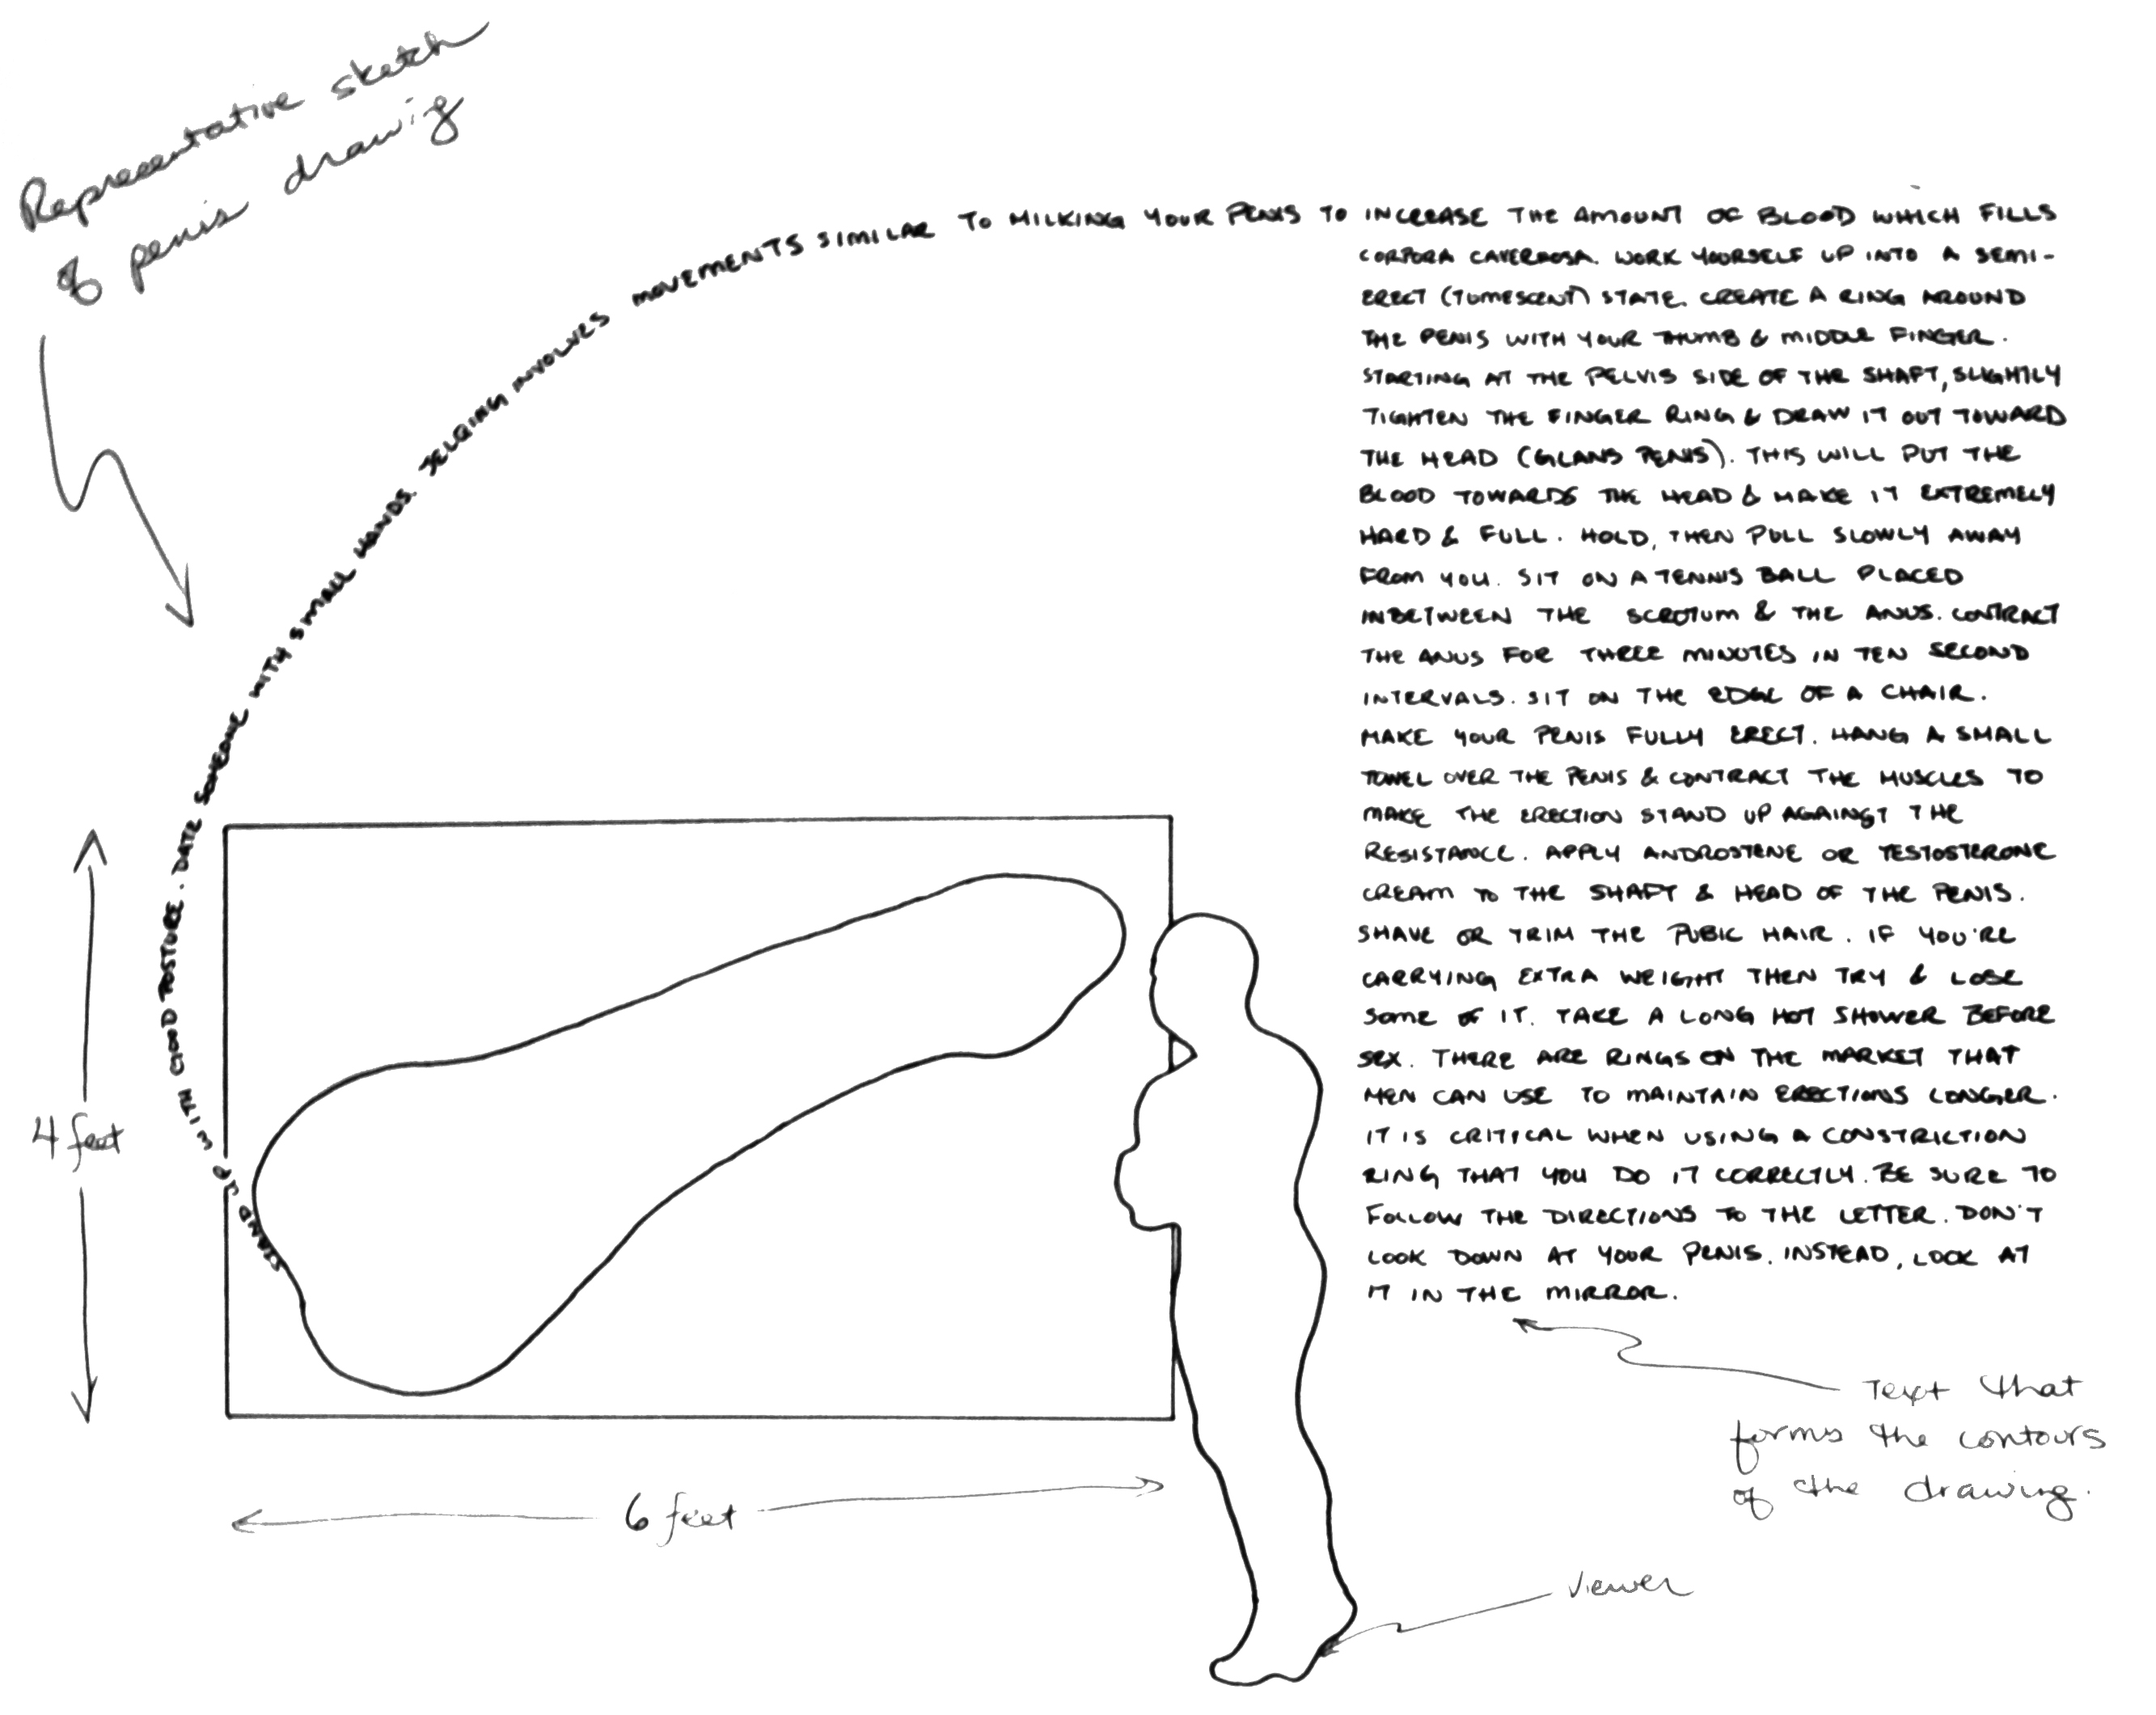 Representative sketch
of penis drawing
STAND UP WITH GOOD POSTURE. DATE SOMEONE WITH SMALL HANDS. JELQING INVOLVES MOVEMENTS SIMILAR TO MILKING YOUR PENIS TO INCREASE THE AMOUNT OF BLOOD WHICH FILLS
CORPORA CAVERNOSA. WORK YOURSELF UP INTO A SEMI-
ERECT (TUMESCENT) STATE. CREATE A RING AROUND
THE PENIS WITH YOUR THUMB & MIDDLE FINGER.
STARTING AT THE PELVIS SIDE OF THE SHAFT, SLIGHTLY
TIGHTEN THE FINGER RING & DRAW IT OUT TOWARD
THE HEAD (GLANS PENIS). THIS WILL PUT THE
BLOOD TOWARDS THE HEAD & MAKE IT EXTREMELY
HARD & FULL. HOLD, THEN PULL SLOWLY AWAY
FROM YOU. SIT ON A TENNIS BALL PLACED
INBETWEEN THE SCROTUM & THE ANUS. CONTRACT
THE ANUS FOR THREE MINUTES IN TEN SECOND
INTERVALS. SIT ON THE EDGE OF A CHAIR.
MAKE YOUR PENIS FULLY ERECT. HANG A SMALL
TOWEL OVER THE PENIS & CONTRACT THE MUSCLES TO
MAKE THE ERECTION STAND UP AGAINST THE
RESISTANCE. APPLY ANDROSTENE OR TESTOSTERONE
CREAM TO THE SHAFT & HEAD OF THE PENIS.
SHAVE OR TRIM THE PUBIC HAIR. IF YOU'RE
CARRYING EXTRA WEIGHT THEN TRY & LOSE
SOME OF IT. TAKE A LONG HOT SHOWER BEFORE
SEX. THERE ARE RINGS ON THE MARKET THAT
MEN CAN USE TO MAINTAIN ERECTIONS LONGER.
IT IS CRITICAL WHEN USING A CONSTRICTION
RING THAT YOU DO IT CORRECTLY. BE SURE TO
FOLLOW THE DIRECTIONS TO THE LETTER. DON'T
LOOK DOWN AT YOUR PENIS. INSTEAD, LOOK AT
IT IN THE MIRROR.
4 feet
6 feet
Text that
forms the contours
of the drawing.
viewer